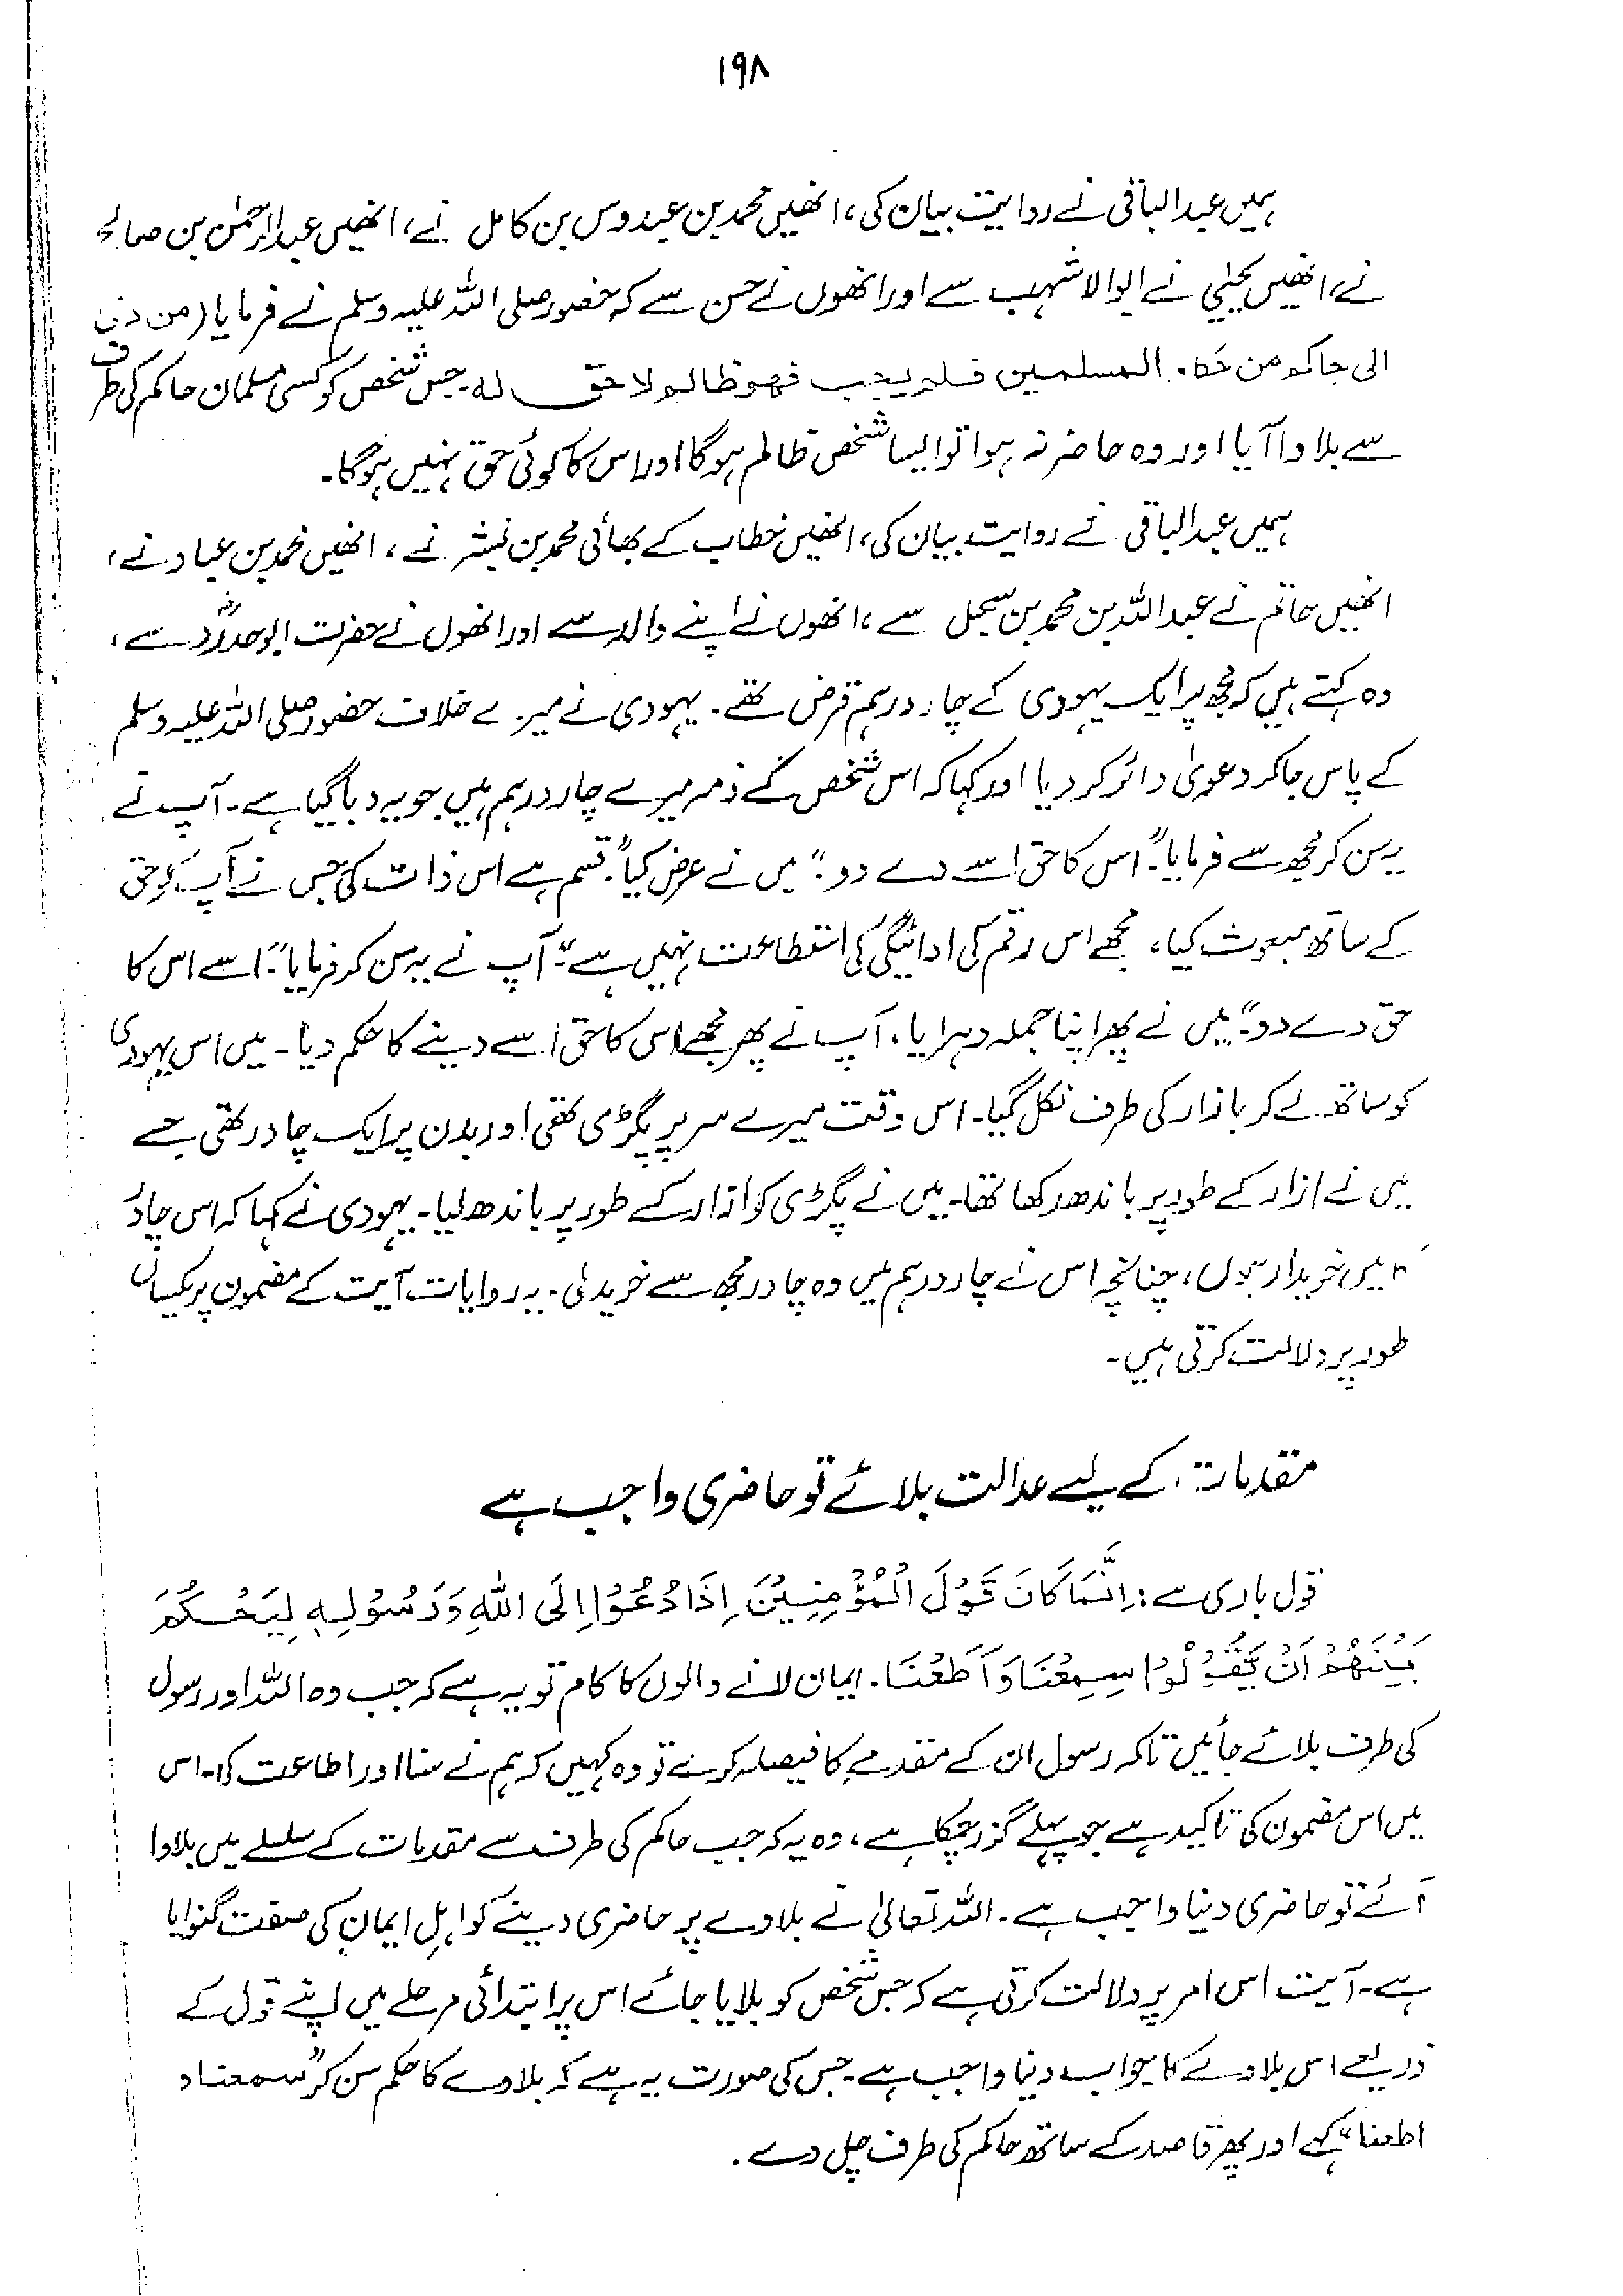 ۱۹۸
ہمیں عبدالباقی نے روایت بیان کی، انھیں محمد بن عبدوس بن کامل نے، انھیں عبدالرحمٰن بن صالح
نے، انھیں یحییٰ نے ابوالاشہب سے اور انھوں نے حسن سے کہ حضور صلی اللہ علیہ وسلم نے فرمایا (من دعی
الی حاکم من حکام المسلمین فلم یجب فھو ظالم لا حق لہ۔ جس شخص کو کسی مسلمان حاکم کی طرف
سے بلاوا آیا اور وہ حاضر نہ ہوا تو ایسا شخص ظالم ہوگا اور اس کا کوئی حق نہیں ہوگا۔
ہمیں عبدالباقی نے روایت بیان کی، انھیں خطاب کے بھائی محمد بن بشر نے، انھیں محمد بن عباد نے،
انھیں حاتم نے عبداللہ بن محمد بن سجل سے، انھوں نے اپنے والد سے اور انھوں نے حضرت ابوحدردؓ سے،
وہ کہتے ہیں کہ مجھ پر ایک یہودی کے چار درہم قرض تھے۔ یہودی نے میرے خلاف حضور صلی اللہ علیہ وسلم
کے پاس جا کر دعویٰ دائر کر دیا اور کہا کہ اس شخص کے ذمہ میرے چار درہم ہیں جو یہ دبا گیا ہے۔ آپ نے
یہ سن کر مجھ سے فرمایا: "اس کا حق اسے دے دو۔" میں نے عرض کیا: "قسم ہے اس ذات کی جس نے آپ کو حق
کے ساتھ مبعوث کیا، مجھے اس رقم کی ادائیگی کی استطاعت نہیں ہے۔" آپ نے یہ سن کر فرمایا: "اسے اس کا
حق دے دو۔" میں نے پھر اپنا جملہ دہرایا، آپ نے پھر مجھے اس کا حق اسے دینے کا حکم دیا۔ میں اس یہودی
کو ساتھ لے کر بازار کی طرف نکل گیا۔ اس وقت میرے سر پر پگڑی تھی اور بدن پر ایک چادر تھی جسے
میں نے ازار کے طور پر باندھ رکھا تھا۔ میں نے پگڑی کو ازار کے طور پر باندھ لیا۔ یہودی نے کہا کہ اس چادر
میں خریدار ہوں، چنانچہ اس نے چار درہم میں وہ چادر مجھ سے خرید لی۔ یہ روایات آیت کے مضمون پر یکساں
طور پر دلالت کرتی ہیں۔
مقدمات کے لیے عدالت بلائے تو حاضری واجب ہے
قول باری ہے: اِنَّمَا كَانَ قَوْلَ الْمُؤْمِنِيْنَ اِذَا دُعُوْا اِلَى اللّٰهِ وَرَسُوْلِهٖ لِيَحْكُمَ
بَيْنَهُمْ اَنْ يَّقُوْلُوْا سَمِعْنَا وَاَطَعْنَا۔ ایمان لانے والوں کا کام تو یہ ہے کہ جب وہ اللہ اور رسول
کی طرف بلائے جائیں تاکہ رسول ان کے مقدمے کا فیصلہ کرے تو وہ کہیں کہ ہم نے سنا اور اطاعت کی۔ اس
میں اس مضمون کی تاکید ہے جو پہلے گزر چکا ہے، وہ یہ کہ جب حاکم کی طرف سے مقدمات کے سلسلے میں بلاوا
آئے تو حاضری دینا واجب ہے۔ اللہ تعالیٰ نے بلاوے پر حاضری دینے کو اہلِ ایمان کی صفت گنوایا
ہے۔ آیت اس امر پر دلالت کرتی ہے کہ جس شخص کو بلایا جائے اس پر ابتدائی مرحلے میں اپنے قول کے
ذریعے اس بلاوے کا جواب دینا واجب ہے۔ جس کی صورت یہ ہے کہ بلاوے کا حکم سن کر "سمعنا و
اطعنا" کہے اور پھر قاصد کے ساتھ حاکم کی طرف چل دے۔